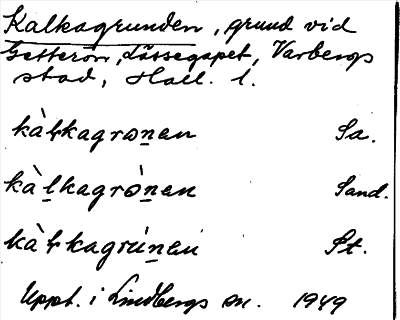 Kalkagrunden, grund vid
Getterön, Lössegapet, Varbergs
stad, Hall. l.
kàł̵kagrơnen Sa.
kàlkagrờnen Sand.
kàł̵kagrúnen St.
Uppt. i Lindbergs sn. 1949